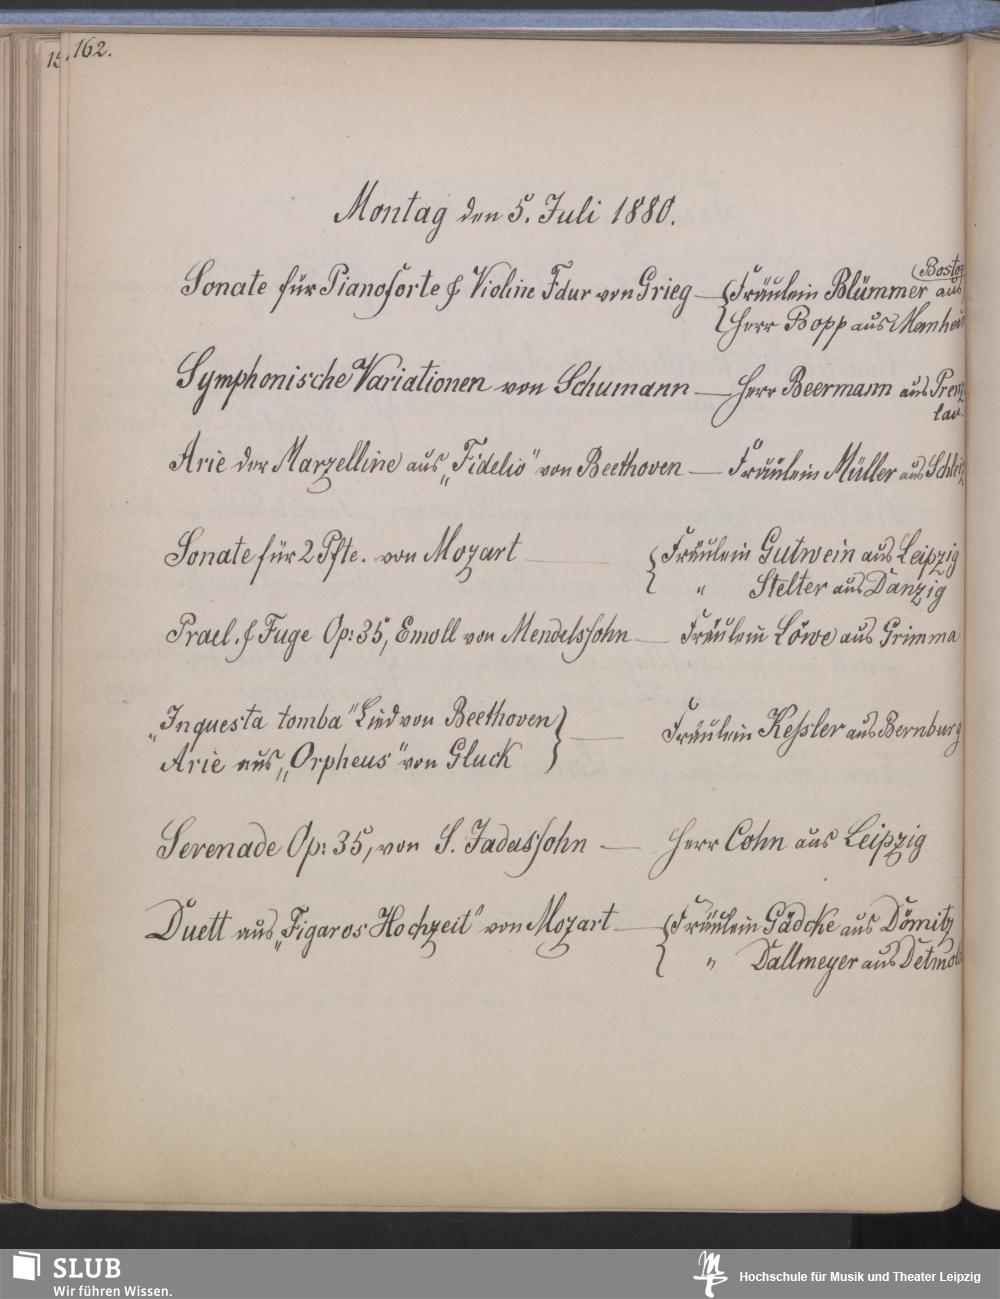 162.
Montag den 5. Juli 1880.
Sonate für Pianoforte & Violine Fdur von Grieg — Fräulein Blümmer aus
(Boston
Herr Bopp aus Manheim
Symphonische Variationen von Schumann — Herr Beermann aus Prenz
lau.
Arie der Marzelline aus „Fidelio" von Beethoven — Fräulein Müller aus Schleiz
Sonate für 2 Pfte. von Mozart — Fräulein Gutwein aus Leipzig
" Stelter aus Danzig
Prael. & Fuge Op: 35, Emoll von Mendelssohn — Fräulein Löwe aus Grimma
„In questa tomba" Lied von Beethoven
Arie aus „Orpheus" von Gluck — Fräulein Kessler aus Bernburg
Serenade Op: 35, von S. Jadassohn — Herr Cohn aus Leipzig
Duett aus „Figaros Hochzeit" von Mozart — Fräulein Gädcke aus Dömitz
" Dallmeyer aus Detmold
SLUB
Wir führen Wissen.
Hochschule für Musik und Theater Leipzig